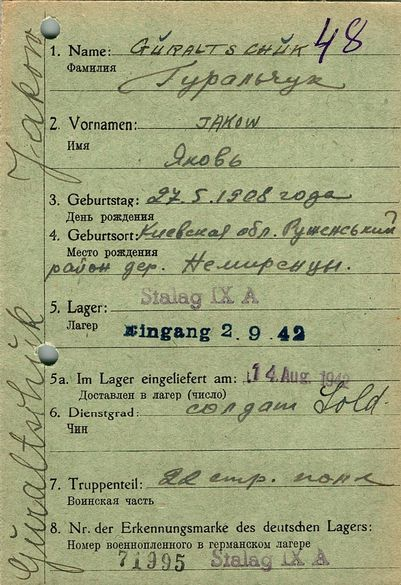 48
1. Name: GŬRALTSCHŬK
Фамилия
Гуральчук
2. Vornamen: JAKOW
Имя
Яковъ
3. Geburtstag: 27.5.1908 года
День рождения
4. Geburtsort: Киевская обл. Руженський
Место рождения
район дер. Немиренцы.
5. Lager: Stalag IX A
Лагер
Eingang 2. 9. 42
5a. Im Lager eingeliefert am: 14. Aug. 1942
Доставлен в лагер (число)
6. Dienstgrad: солдат Sold.
Чин
7. Truppenteil: 22 стр. полк
Воинская часть
8. Nr. der Erkennungsmarke des deutschen Lagers:
Номер военнопленного в германском лагере
71995 Stalag IX A
Gŭraltschŭk Jakow